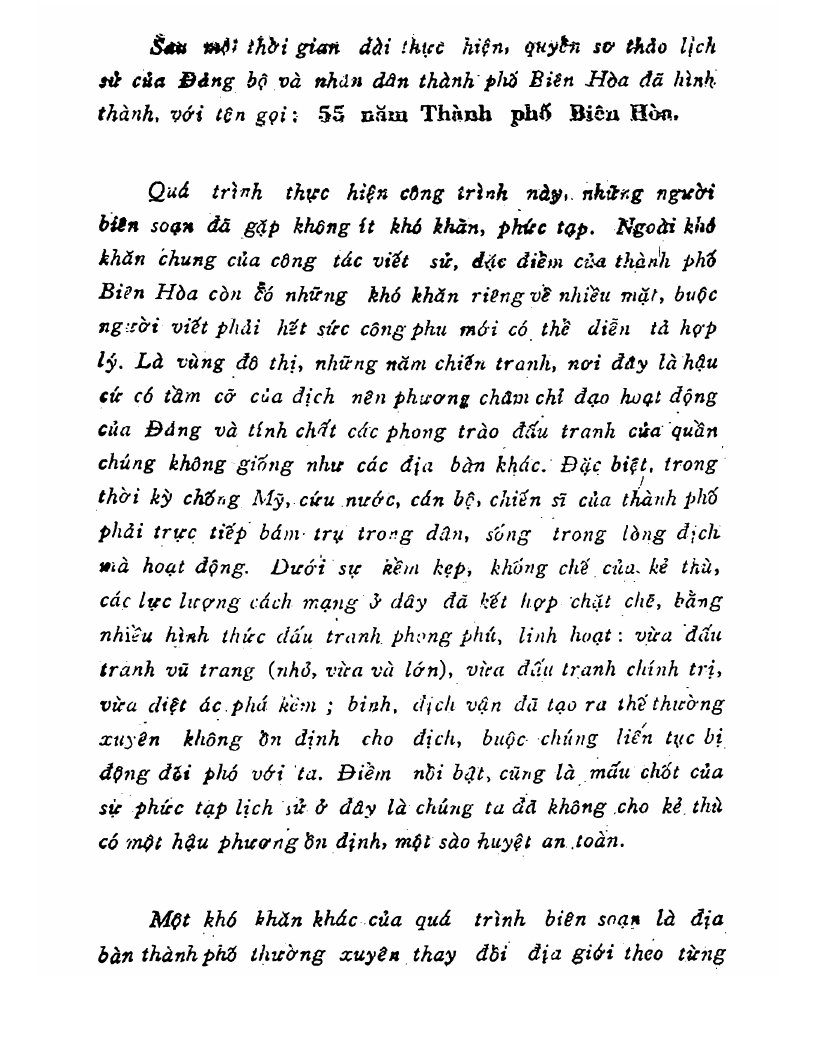 Sau một thời gian dài thực hiện, quyền sơ thảo lịch
sử của Đảng bộ và nhân dân thành phố Biên Hòa đã hình
thành, với tên gọi : 55 năm Thành phố Biên Hòa.
Quá trình thực hiện công trình này, những người
biên soạn đã gặp không ít khó khăn, phức tạp. Ngoài khó
khăn chung của công tác viết sử, đặc điềm của thành phố
Biên Hòa còn có những khó khăn riêng về nhiều mặt, buộc
người viết phải hết sức công phu mới có thề diễn tả hợp
lý. Là vùng đô thị, những năm chiến tranh, nơi đây là hậu
cứ có tầm cỡ của địch nên phương châm chỉ đạo hoạt động
của Đảng và tính chất các phong trào đấu tranh của quần
chúng không giống như các địa bàn khác. Đặc biệt, trong
thời kỳ chống Mỹ, cứu nước, cán bộ, chiến sĩ của thành phố
phải trực tiếp bám trụ trong dân, sống trong lòng địch
mà hoạt động. Dưới sự kềm kẹp, khống chế của kẻ thù,
các lực lượng cách mạng ở dây đã kết hợp chặt chẽ, bằng
nhiều hình thức dấu tranh phong phú, linh hoạt : vừa đấu
tranh vũ trang (nhỏ, vừa và lớn), vừa đấu tranh chính trị,
vừa diệt ác phá kềm ; binh, địch vận đã tạo ra thế thường
xuyên không ồn định cho địch, buộc chúng liên tục bị
động đối phó với ta. Điềm nồi bật, cũng là mấu chốt của
sự phức tạp lịch sử ở đây là chúng ta đã không cho kẻ thù
có một hậu phương ồn định, một sào huyệt an toàn.
Một khó khăn khác của quá trình biên soạn là địa
bàn thành phố thường xuyên thay đồi địa giới theo từng